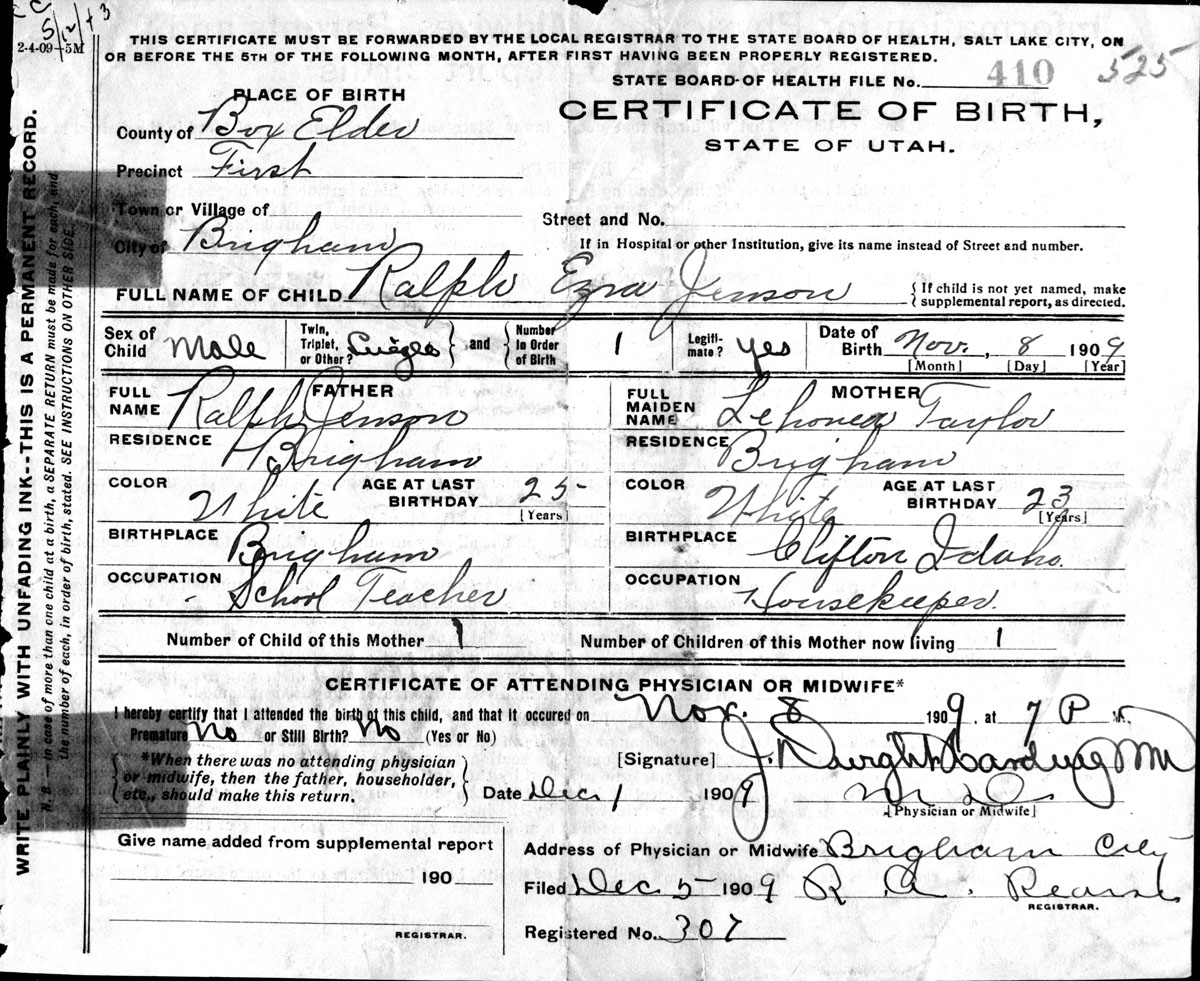 2-4-09-5M
THIS CERTIFICATE MUST BE FORWARDED BY THE LOCAL REGISTRAR TO THE STATE BOARD OF HEALTH, SALT LAKE CITY, ON
OR BEFORE THE 5TH OF THE FOLLOWING MONTH, AFTER FIRST HAVING BEEN PROPERLY REGISTERED.
STATE BOARD OF HEALTH FILE No. 410 525
PLACE OF BIRTH
CERTIFICATE OF BIRTH,
STATE OF UTAH.
County of Box Elder
Precinct First
Town or Village of
Street and No.
City of Brigham
If in Hospital or other Institution, give its name instead of Street and number.
FULL NAME OF CHILD Ralph Ezra Jenson { If child is not yet named, make
supplemental report, as directed.
Sex of Child Male Twin, Triplet, or Other? Single and Number in Order of Birth 1 Legiti-mate? Yes Date of Birth Nov., 8 1909
[Month] [Day] [Year]
FATHER
FULL NAME Ralph Jenson
MOTHER
FULL MAIDEN NAME Taylor
RESIDENCE Brigham
RESIDENCE Brigham
COLOR White AGE AT LAST BIRTHDAY 25 [Years]
COLOR White AGE AT LAST BIRTHDAY 23 [Years]
BIRTHPLACE Brigham
BIRTHPLACE Clifton Idaho.
OCCUPATION School Teacher
OCCUPATION Housekeeper.
Number of Child of this Mother 1 Number of Children of this Mother now living 1
CERTIFICATE OF ATTENDING PHYSICIAN OR MIDWIFE*
I hereby certify that I attended the birth of this child, and that it occured on Nov. 8 1909, at 7 P M.
Premature No or Still Birth? No (Yes or No)
*When there was no attending physician
or midwife, then the father, householder,
etc., should make this return.
[Signature] J. Dwight Harding MD
Date Dec 1 1909 M D
[Physician or Midwife]
Give name added from supplemental report
190
REGISTRAR.
Address of Physician or Midwife Brigham City
Filed Dec 5 1909 R. A. Pearse
REGISTRAR.
Registered No. 307
WRITE PLAINLY WITH UNFADING INK--THIS IS A PERMANENT RECORD.
N. B.—In case of more than one child at a birth, a SEPARATE RETURN must be made for each, and
the number of each, in order of birth, stated. SEE INSTRUCTIONS ON OTHER SIDE.